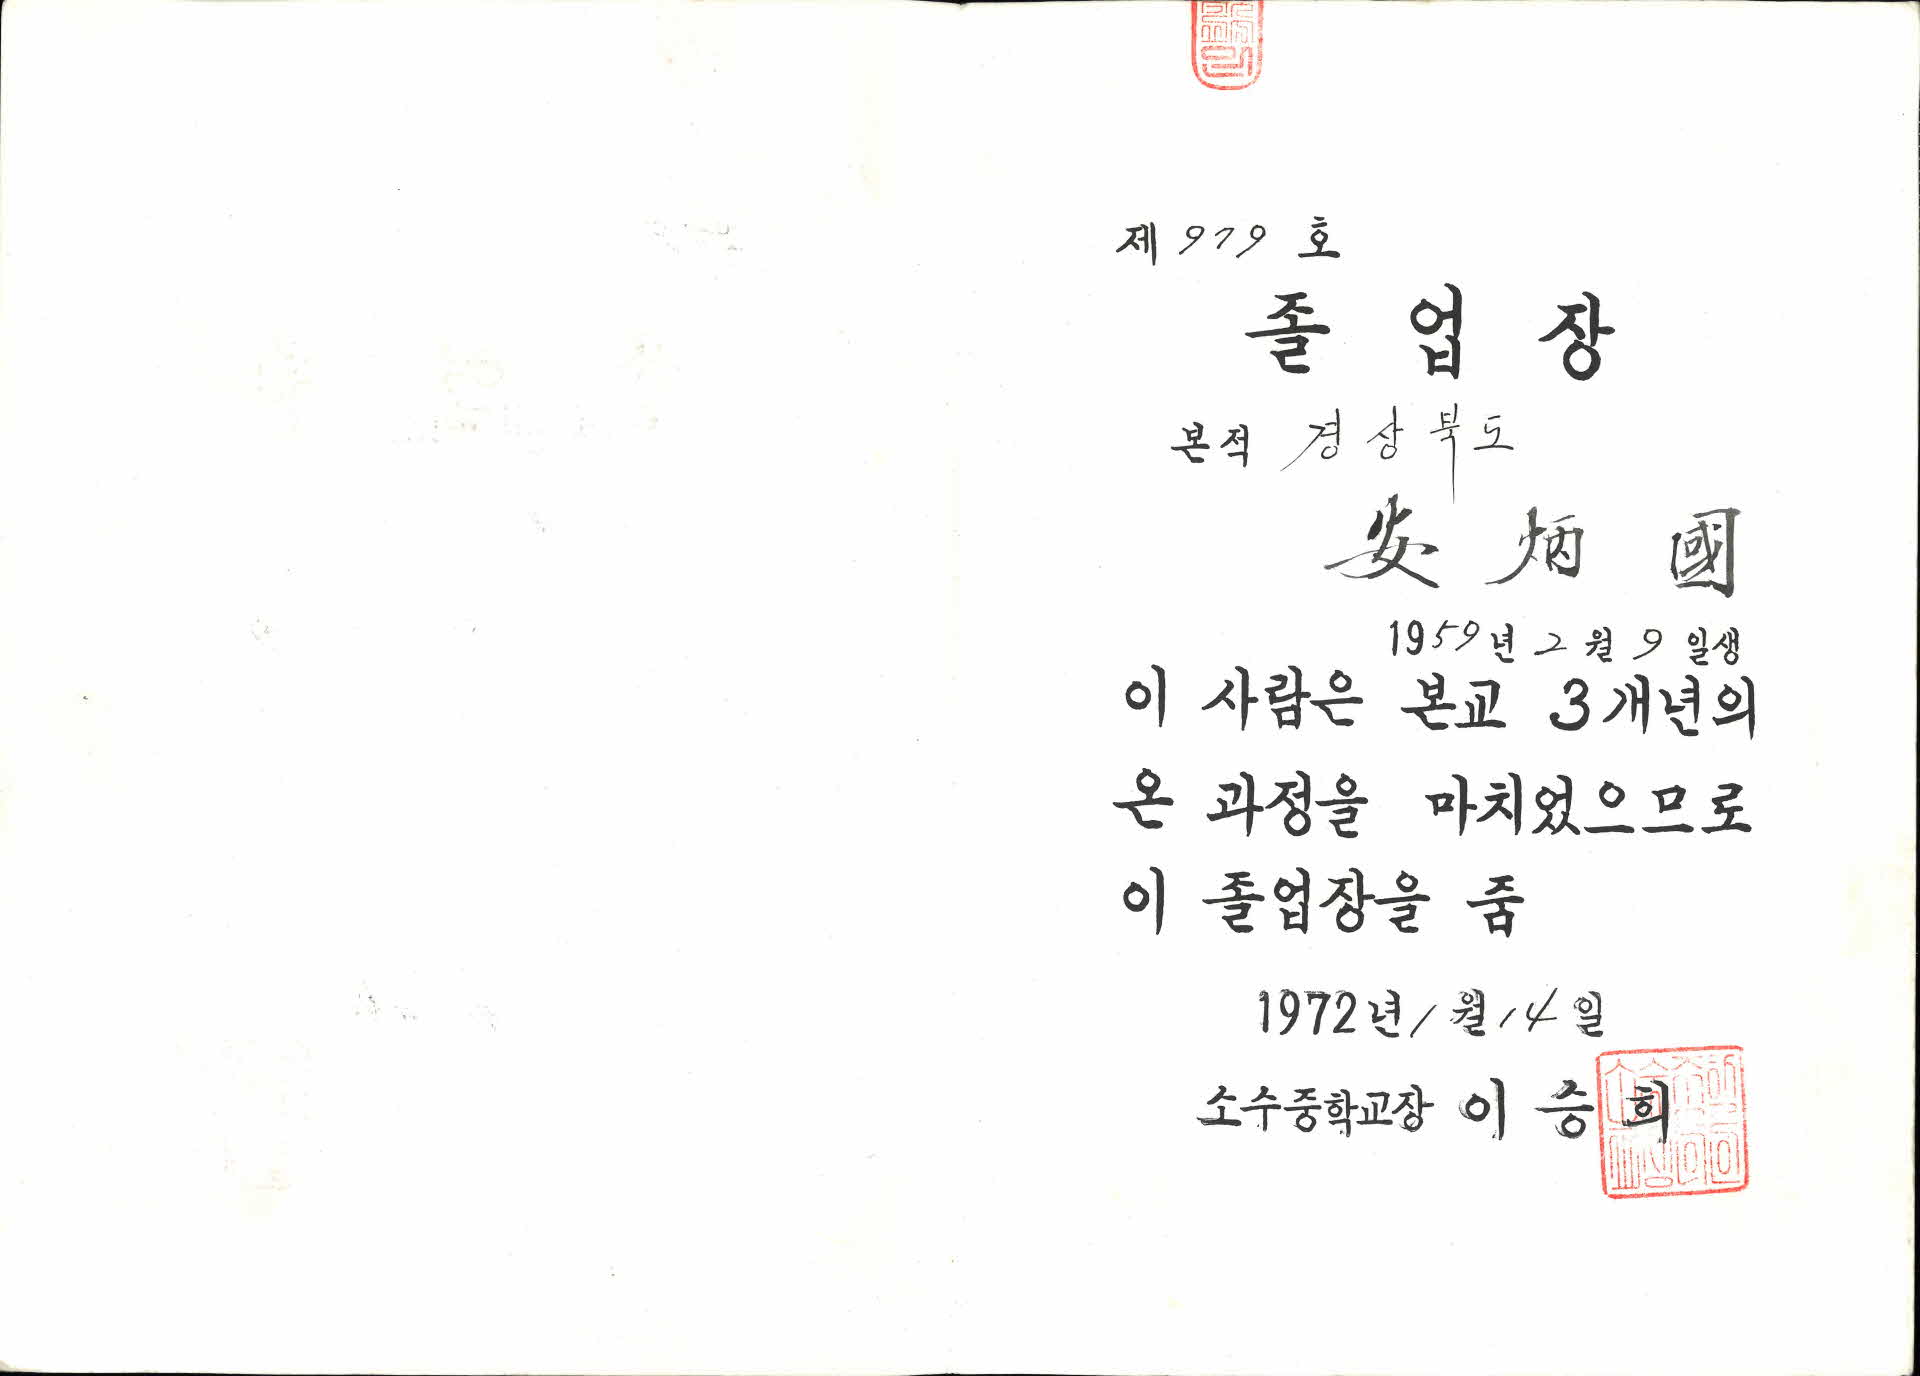 제 979 호
졸 업 장
본적 경상북도
安 炳 國
1959년 2월 9일생
이 사람은 본교 3개년의
온 과정을 마치었으므로
이 졸업장을 줌
1972년 1월 14일
소수중학교장 이 승 희